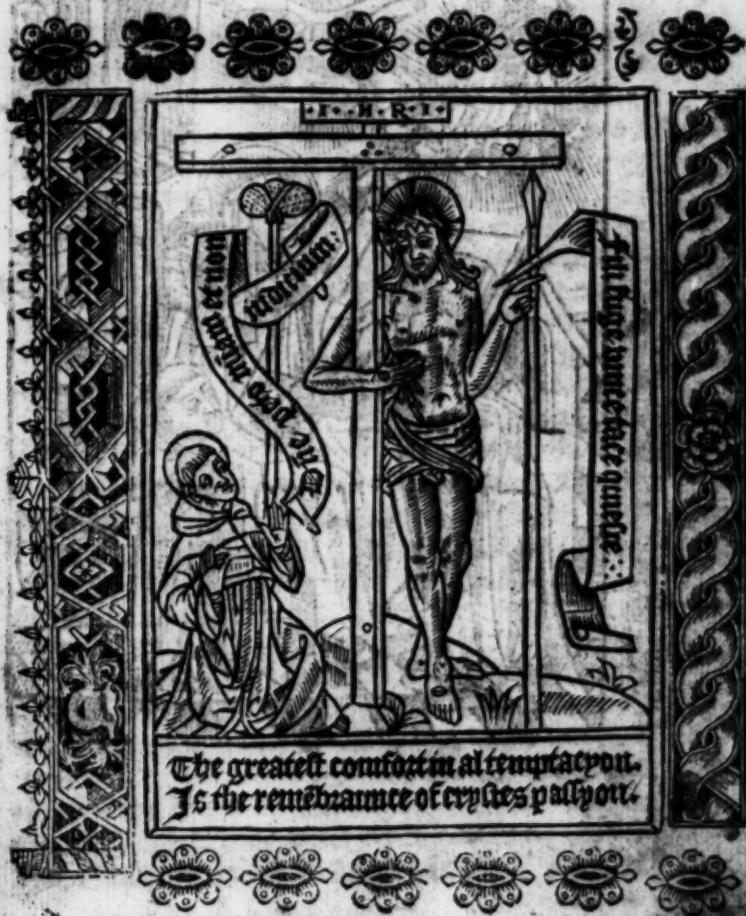 ·I·H·R·I·
Dñe peto miam et non
iudicium:
Fili fuge vince tace quiesce :·
The greatest comfort in al temptacyon.
Is the remēbraunce of crystes passyon.